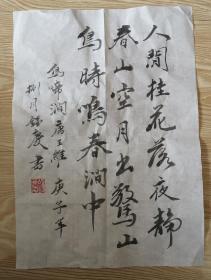 人閒桂花落夜靜
春山空月出驚山
鳥時鳴春澗中
鳥鳴澗唐王維庚子年
捌月 慶書